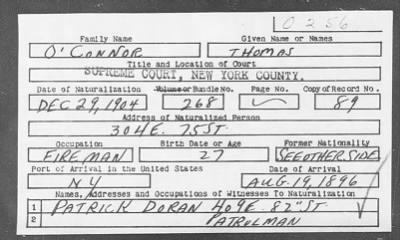 O 256
Family Name Given Name or Names
O'CONNOR THOMAS
Title and Location of Court
SUPREME COURT, NEW YORK COUNTY.
Date of Naturalization Volume or Bundle No. Page No. Copy of Record No.
DEC 29, 1904 268 89
Address of Naturalized Person
304 E. 75 ST.
Occupation Birth Date or Age Former Nationality
FIREMAN 27 SEE OTHER SIDE
Port of Arrival in the United States Date of Arrival
N Y AUG. 19, 1896
Names, Addresses and Occupations of Witnesses To Naturalization
1 PATRICK DORAN 404 E. 82" ST.
2 PATROLMAN